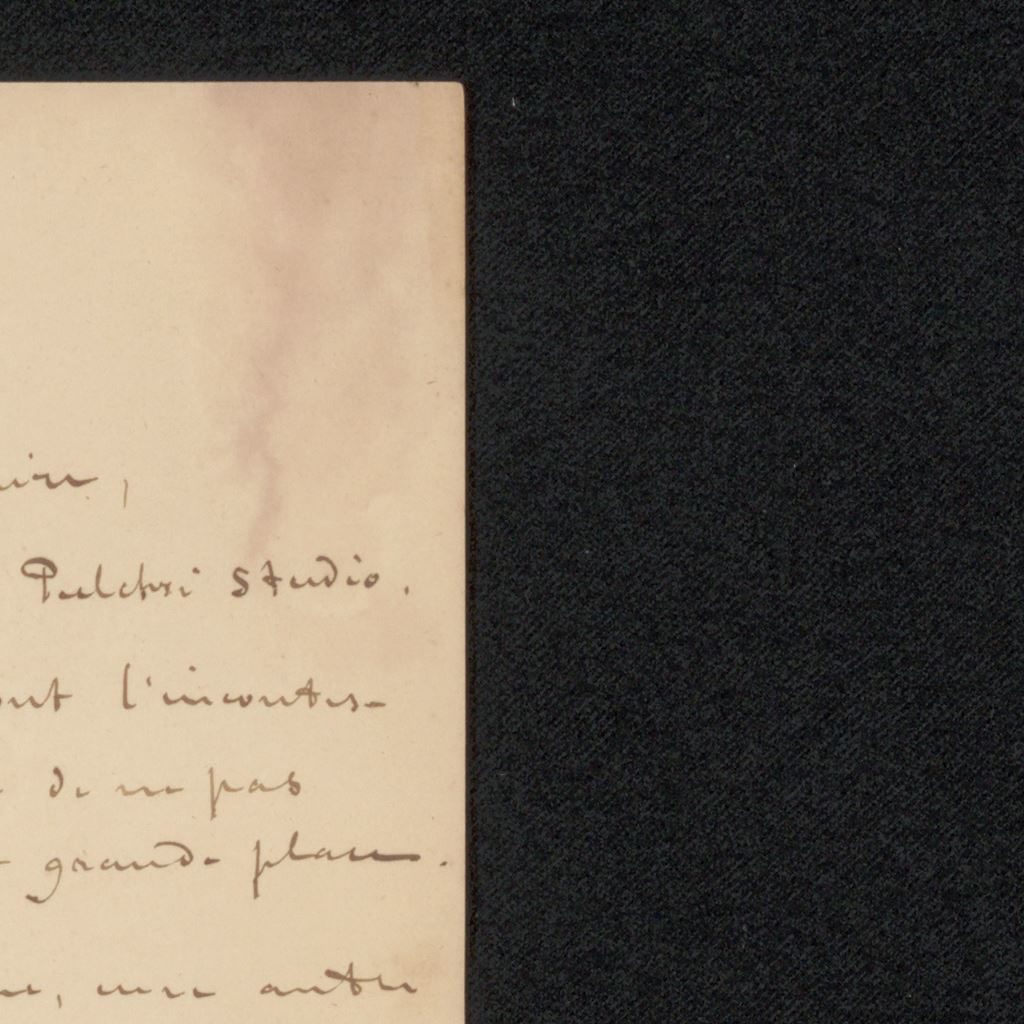 Pulchri Studio.
l'incontes-
de ne pas
grande place.
, une autre